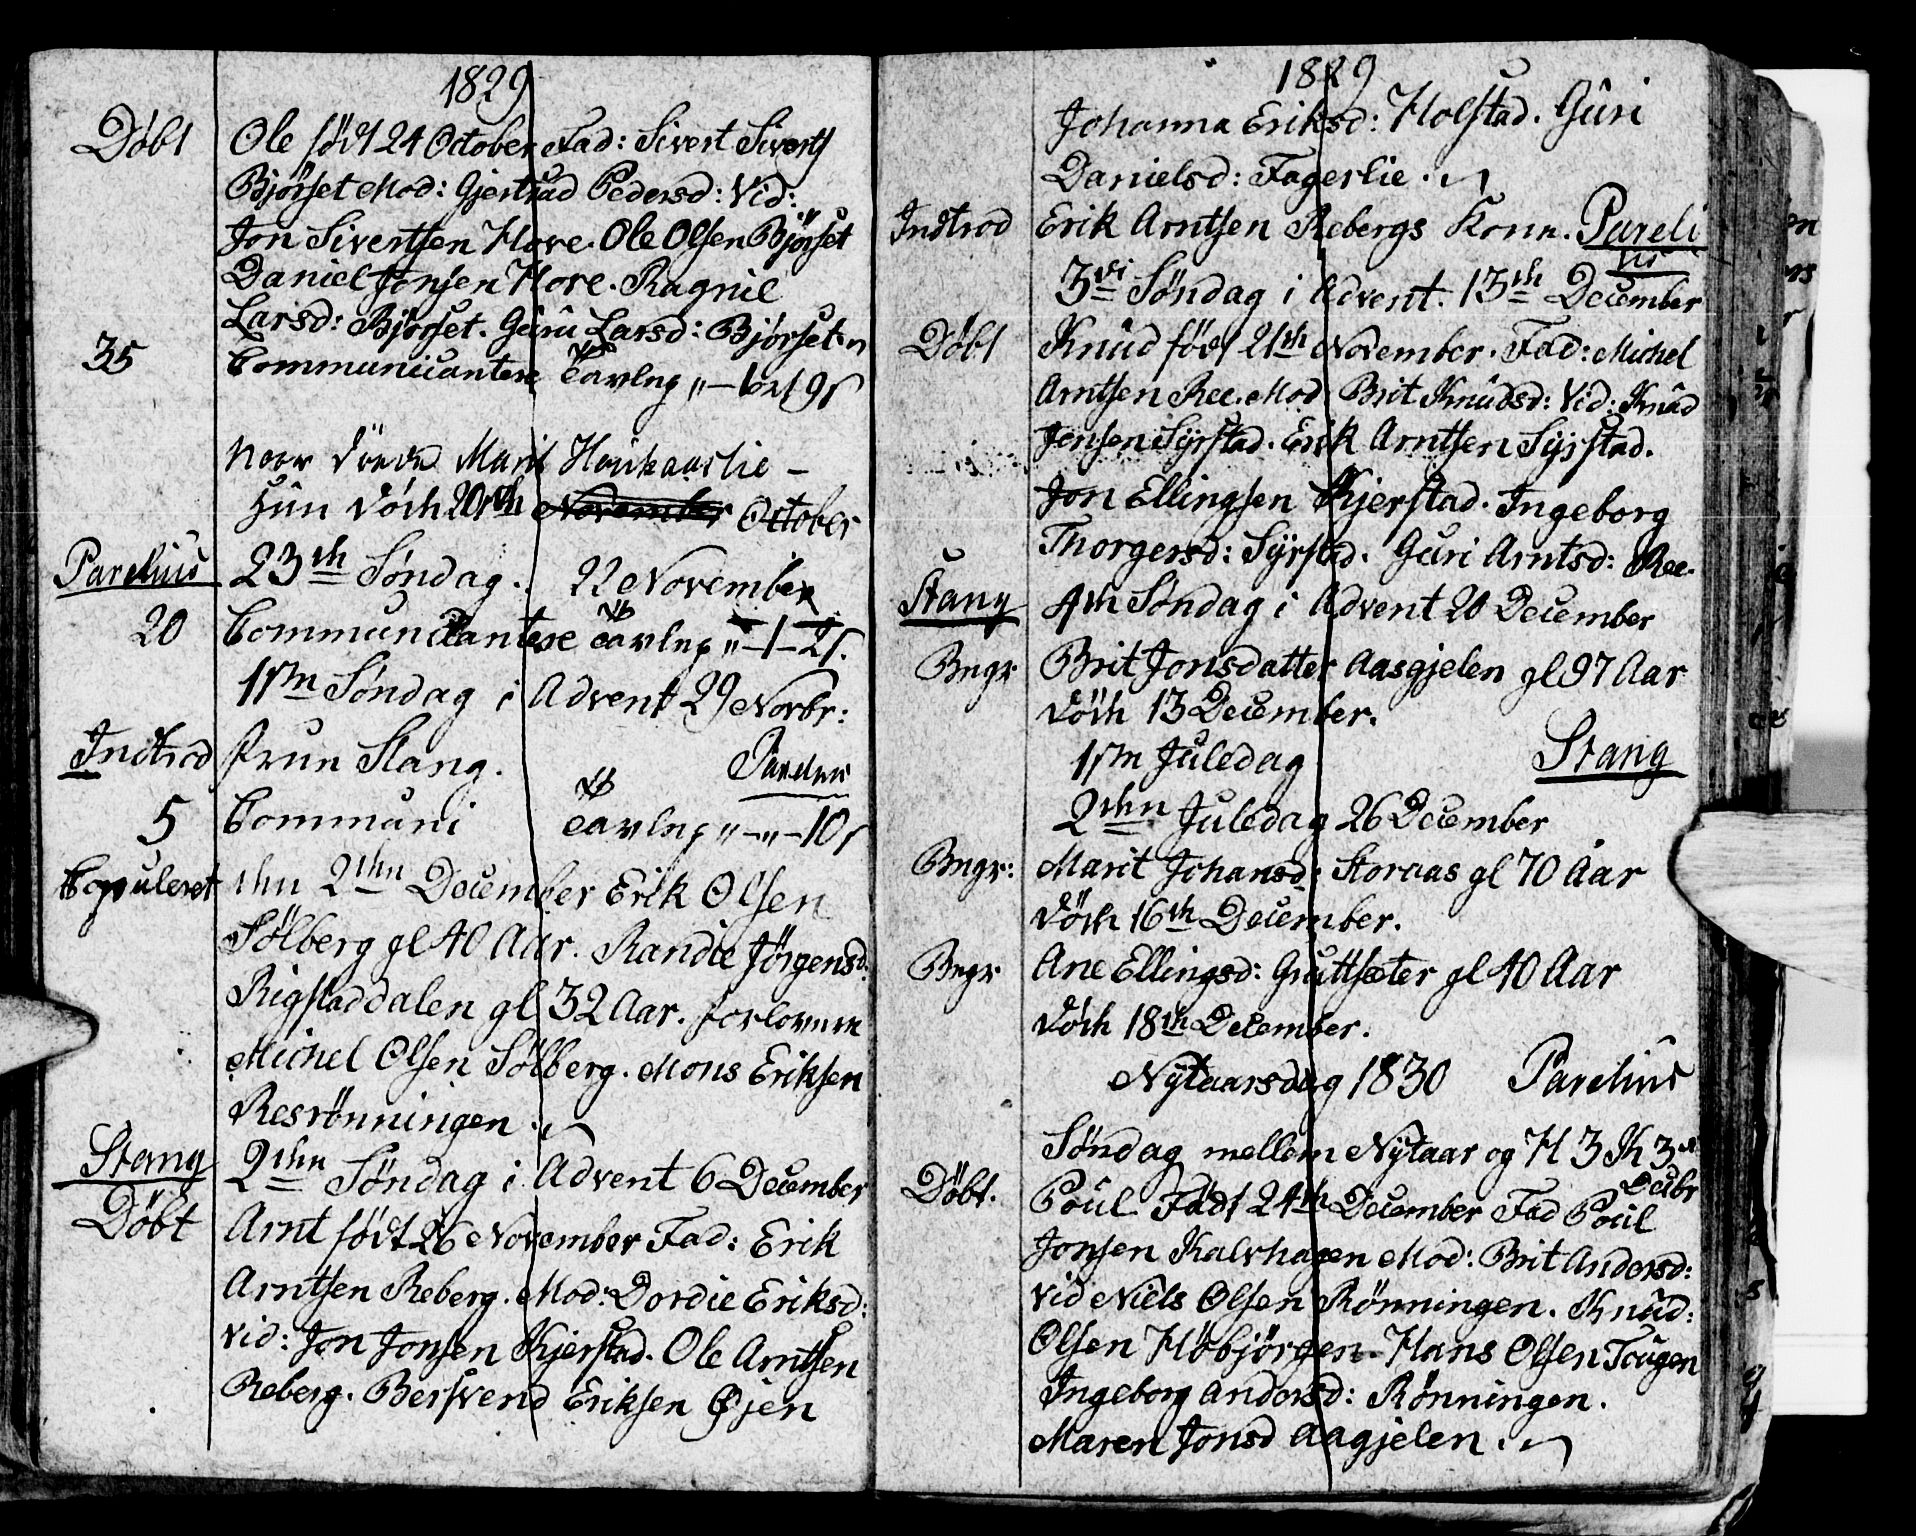 1829
Döbt Ole född 24 October Fad: Sivert Siverts
Bjørset Mod: Gjertrud Pedersd: Vid:
Jon Sivertsen Hove. Ole Olsen Bjørset
Daniel Jonsen Hove. Ragnil
Larsd: Bjørset. Guru Larsd: Bjørset
35 Communicantere Tavlng „ – 1 ort 9 s
Noer döde Marit Höikaaslie –
Hun döde 20de November October
Parelius 23th Søndag. 22 November
20 Communicantere NB Tavlng „ – 1 – 2 s.
1stn Søndag i Advent 29 Novbr:
Indtrod Frue Stang. Parelius
5 Communi NB Tavlng „ – „ – 10 s
Copuleret den 2den December Erik Olsen
Sölberg gl 40 Aar. Randie Jørgensd:
Rigstaddalen gl 32 Aar. Forlovere
Michel Olsen Sölberg. Mons Eriksen
Resrönningen.
Stang 2den Søndag i Advent 6 December
Döbt Arnt född 26 November Fad: Erik
Arntsen Reberg. Mod: Dordie Eriksd:
Vid: Jon Jonsen Kjerstad. Ole Arntsen
Reberg. Bersvend Eriksen Øjen
1829
Johanna Eriksd: Holstad. Guri
Danielsd: Fagerlie.
Indtrod Erik Arntsen Rebergs Kone. Pareli
us
3di Søndag i Advent. 13th December
Döbt Knud född 21th November. Fad: Michel
Arntsen Ree. Mod Brit Knudsd: Vid: Knud
Jonsen Syrstad. Erik Arntsen Syrstad.
Jon Ellingsen Kjerstad. Ingeborg
Thorgersd: Syrstad. Guri Arntsd: Ree.
Stang 4th Søndag i Advent 20 December
Begr Brit Jonsdatter Aasgjelen gl 97 Aar
död 13 December.
1stn Juledag Stang
2den Juledag 26 December
Begr: Marit Johansd: Storaas gl 70 Aar
död 16th December.
Begr Ane Ellingsd: Gruttsæter gl 40 Aar
död 18th December.
Nytaarsdag 1830 Parelius
Søndag mellem Nytaar og H 3 K 3d
Decbr
Döbt. Poul Födt 24th December Fad Poul
Jonsen Kalvhagen Mod: Brit Andersd:
Vid Niels Olsen Rønningen. Knud:
Olsen Höbjörgen. Hans Olsen Tougen
Ingeborg Andersd: Rønningen.
Maren Jonsd Aagjelen.